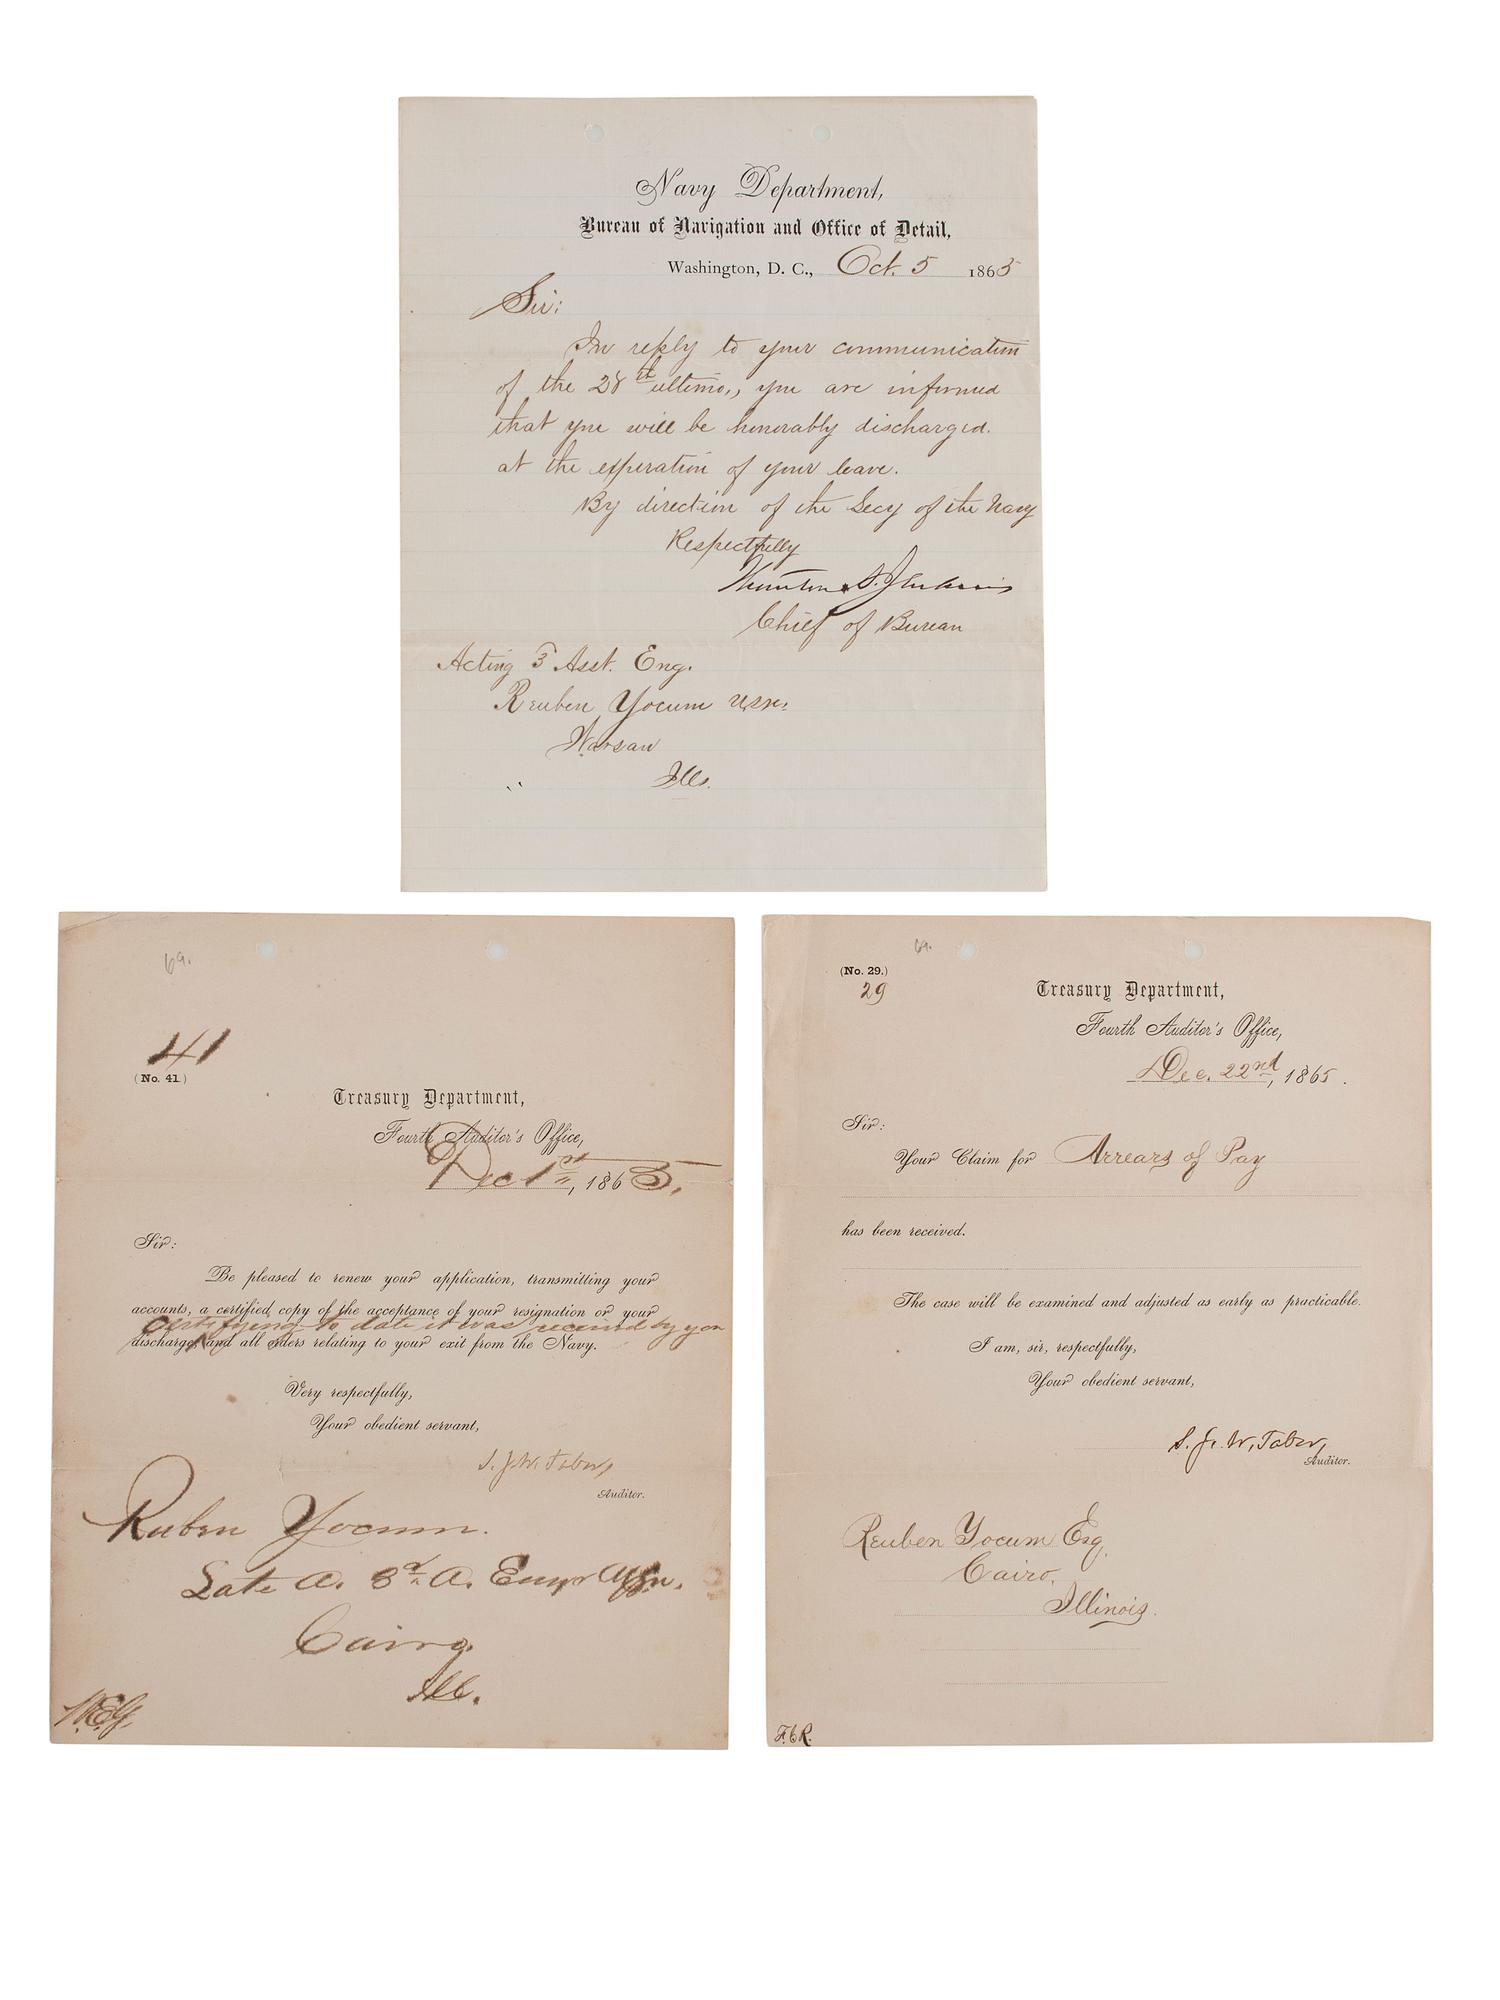 Navy Department,
Bureau of Navigation and Office of Detail,
Washington, D. C., Oct. 5 1865
Sir:
In reply to your communication
of the 28th ultimo,, you are informed
that you will be honorably discharged.
at the experation of your leave.
By direction of the Secy of the Navy
Respectfully
Thornton A. Jenkins
Chief of Bureau
Acting 3 Asst. Eng.
Reuben Yocum USN.
Warsaw
Ills.
69.
41
(No. 41)
Treasury Department,
Fourth Auditor's Office,
Dec 1st, 1865.
Sir:
Be pleased to renew your application, transmitting your
accounts, a certified copy of the acceptance of your resignation or your
Certifying to date it was received by you
discharge, and all orders relating to your exit from the Navy.
Very respectfully,
Your obedient servant,
S. J. W. Tabor,
Auditor.
Reuben Yocum.
Late A. 3d. A. Engr
Cairo.
Ill.
69.
(No. 29.)
29
Treasury Department,
Fourth Auditor's Office,
Dec. 22nd, 1865.
Sir:
Your Claim for Arrears of Pay
has been received.
The case will be examined and adjusted as early as practicable.
I am, sir, respectfully,
Your obedient servant,
S. J. W. Tabor,
Auditor.
Reuben Yocum Esq.
Cairo,
Illinois.